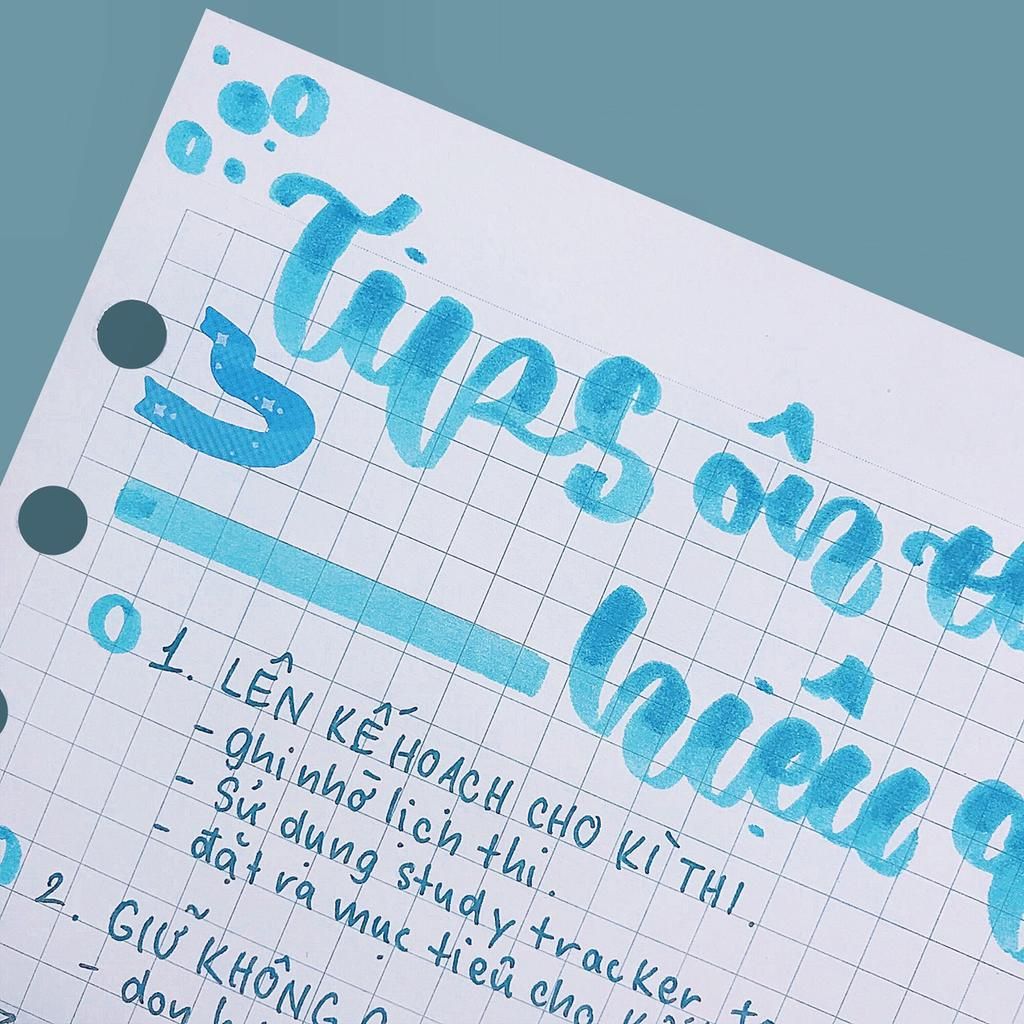 Tips ôn
hiệu
1. LÊN KẾ HOẠCH CHO KÌ THI.
- ghi nhớ lịch thi.
- Sử dụng study tracker
- đặt ra mục tiêu cho
2. GIỮ KHÔNG
- dọn